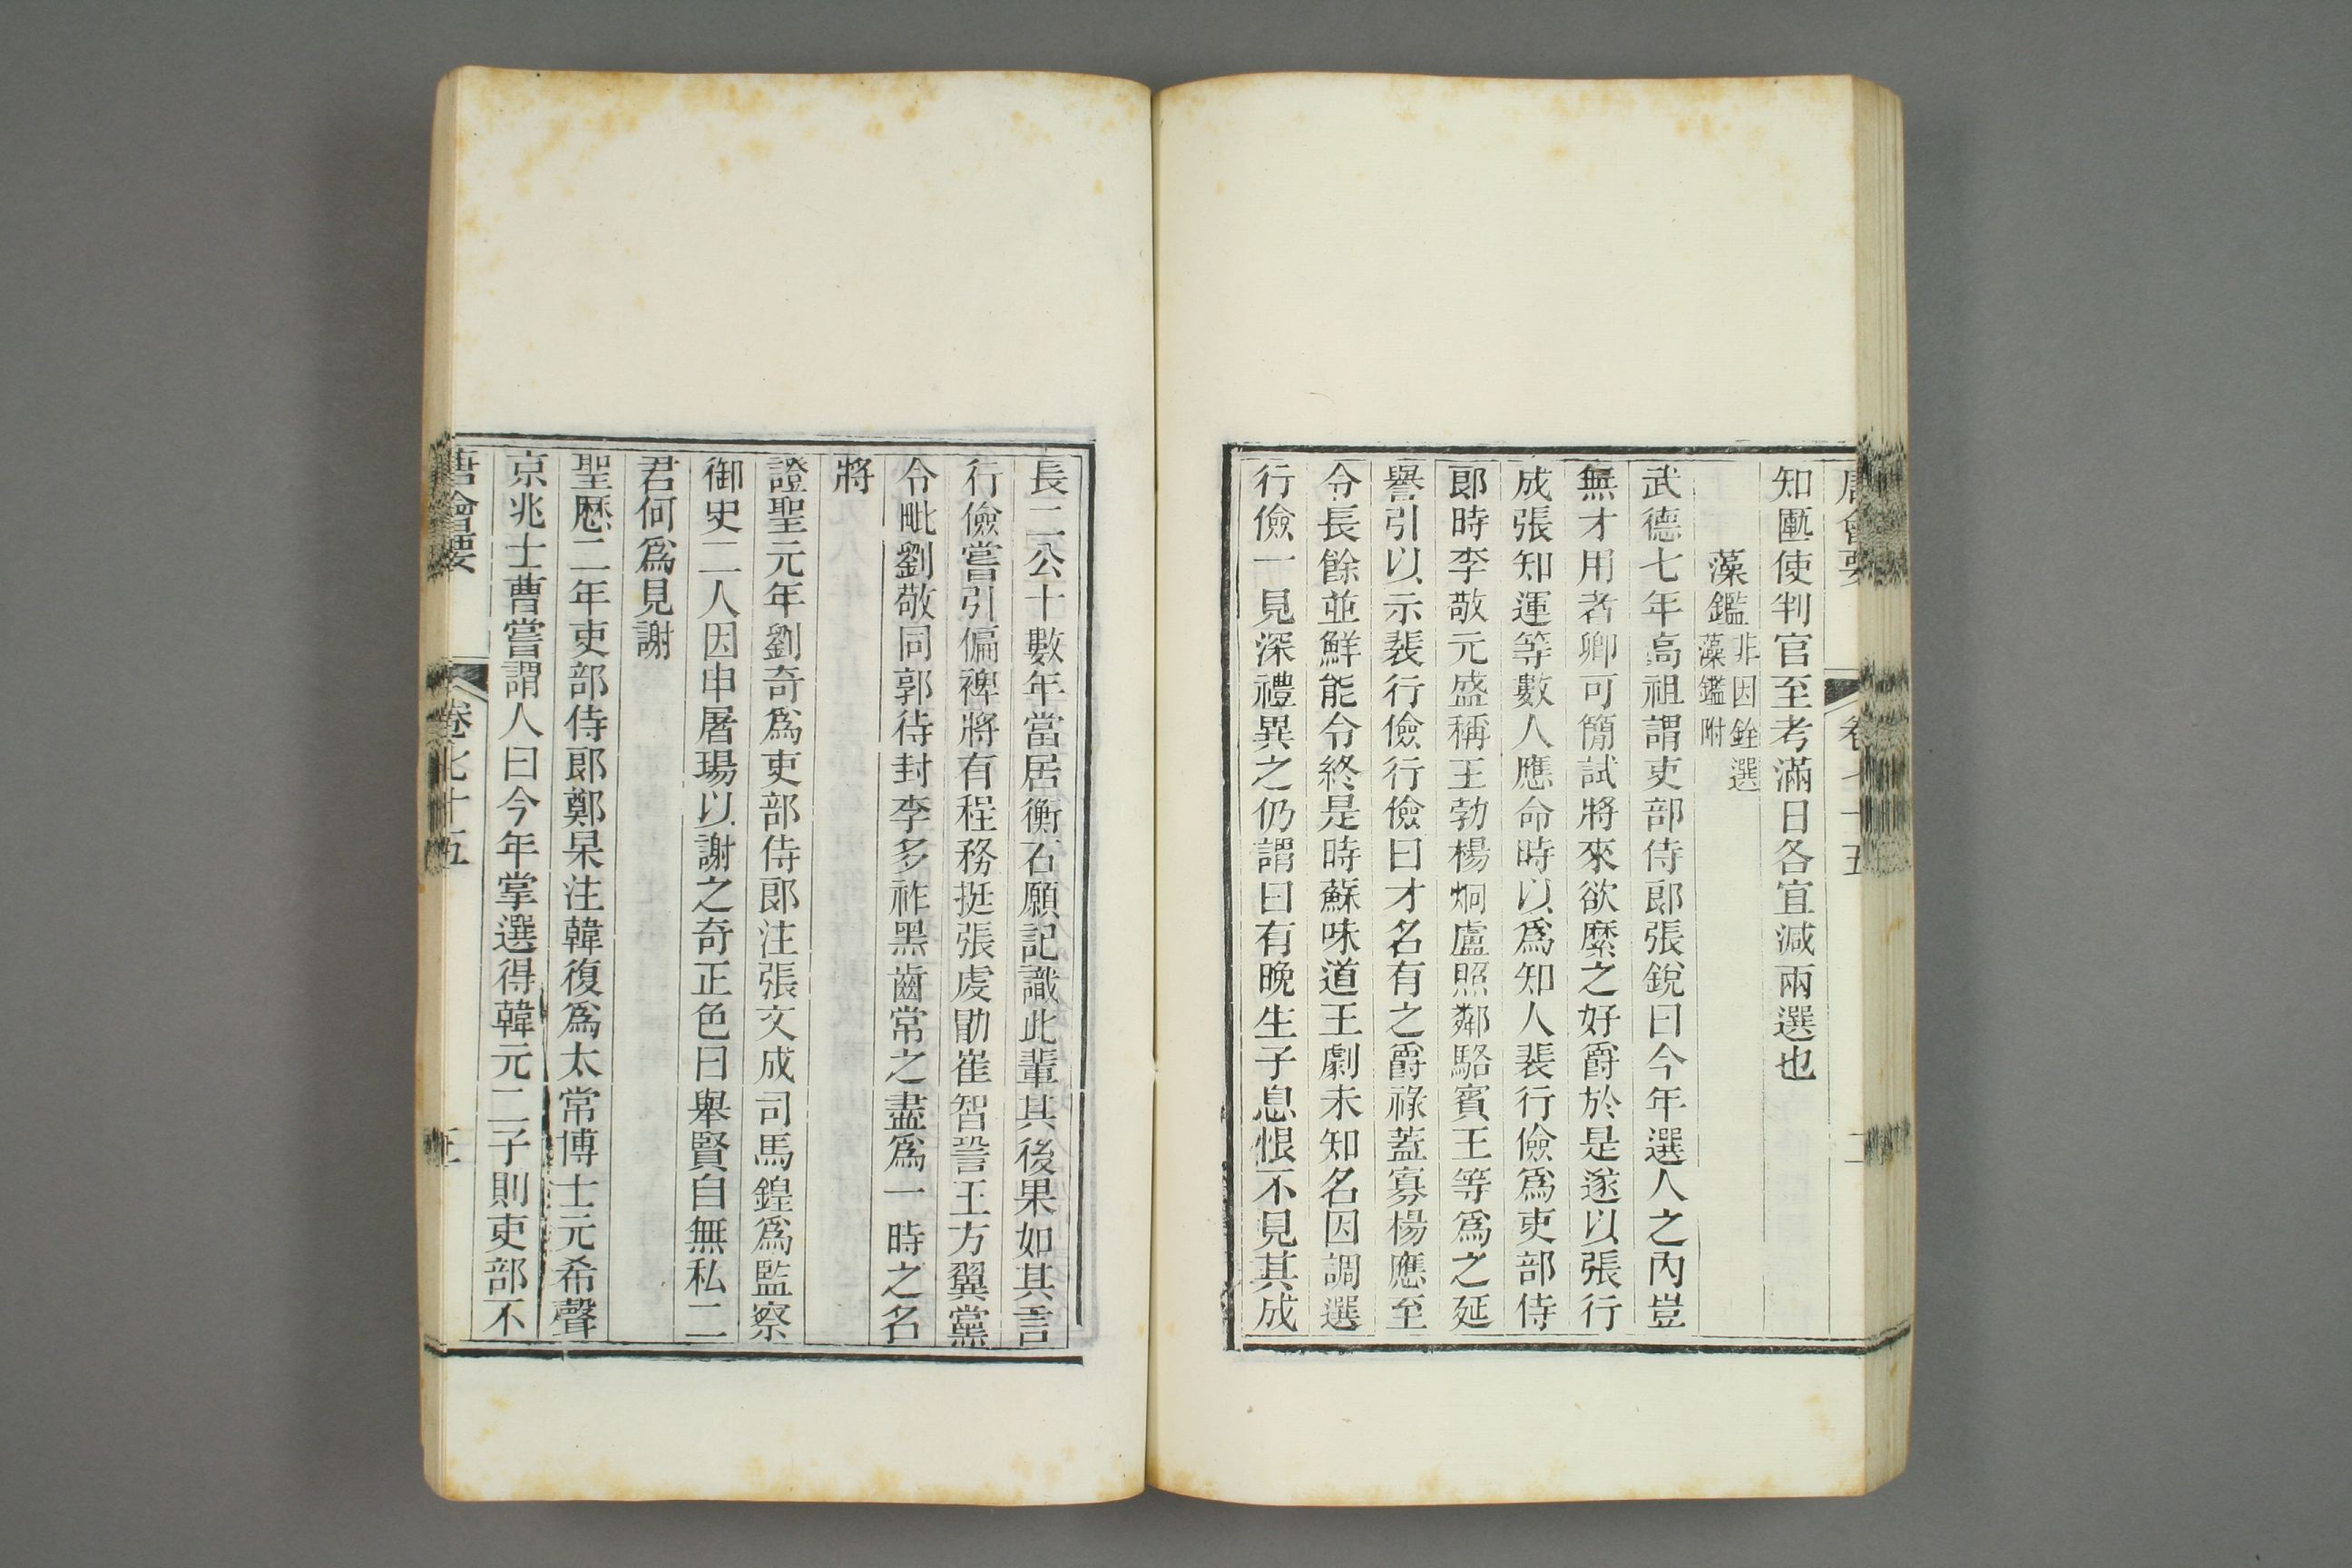 唐會要 卷七十五
知匭使判官至考滿日各宜減兩選也
藻鑑 非因銓選藻鑑附
武德七年高祖謂吏部侍郎張銳曰今年選人之內豈
無才用者卿可簡試將來欲縻之好爵於是遂以張行
成張知運等數人應命時以爲知人裴行儉爲吏部侍
郎時李敬元盛稱王勃楊炯盧照鄰駱賓王等爲之延
譽引以示裴行儉行儉曰才名有之爵祿蓋寡楊應至
令長餘並鮮能令終是時蘇味道王劇未知名因調選
行儉一見深禮異之仍謂曰有晚生子息恨不見其成
長二公十數年當居衡石願記識此輩其後果如其言
行儉嘗引偏裨將有程務挺張虔勖崔智䛒王方翼黨
令毗劉敬同郭待封李多祚黑齒常之盡爲一時之名
將
證聖元年劉奇爲吏部侍郎注張文成司馬鍠爲監察
御史二人因申屠瑒以謝之奇正色曰舉賢自無私二
君何爲見謝
聖歷二年吏部侍郎鄭杲注韓復爲太常博士元希聲
京兆士曹嘗謂人曰今年掌選得韓元二子則吏部不
唐會要 卷七十五